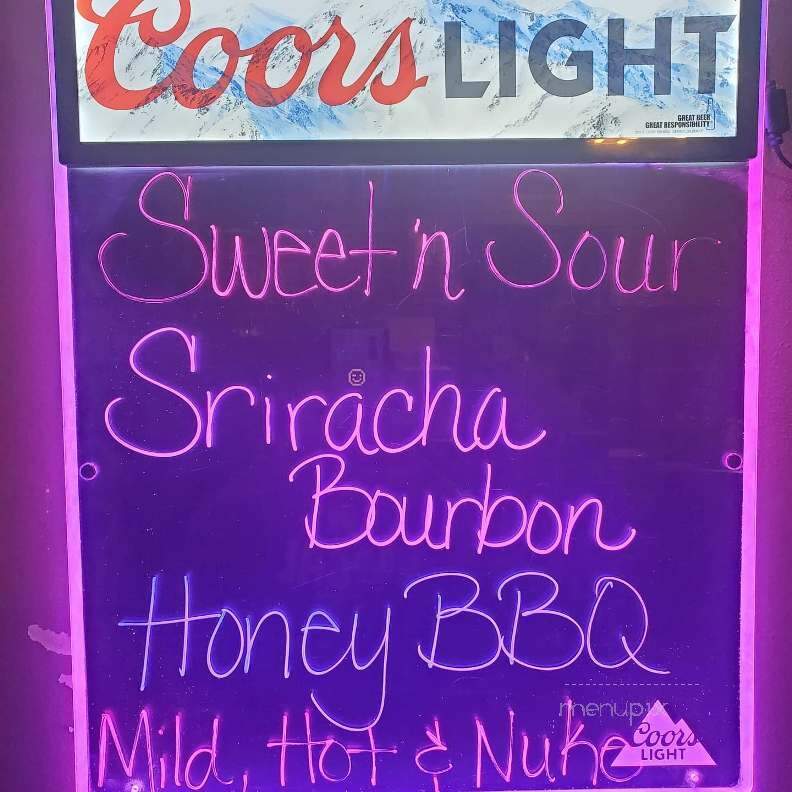 Coors LIGHT
GREAT BEER
GREAT RESPONSIBILITY
Sweet 'n Sour
Sriracha
Bourbon
Honey BBQ
menupix
Mild, Hot & Nuke
Coors
LIGHT